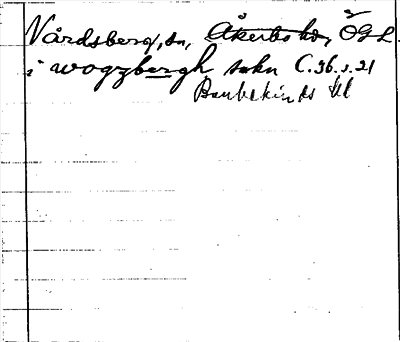 Vårdsberg, sn, Åkerbo hd, ÖGL
i wogzbergh sokn C. 36. s. 21
Bankekinds hd